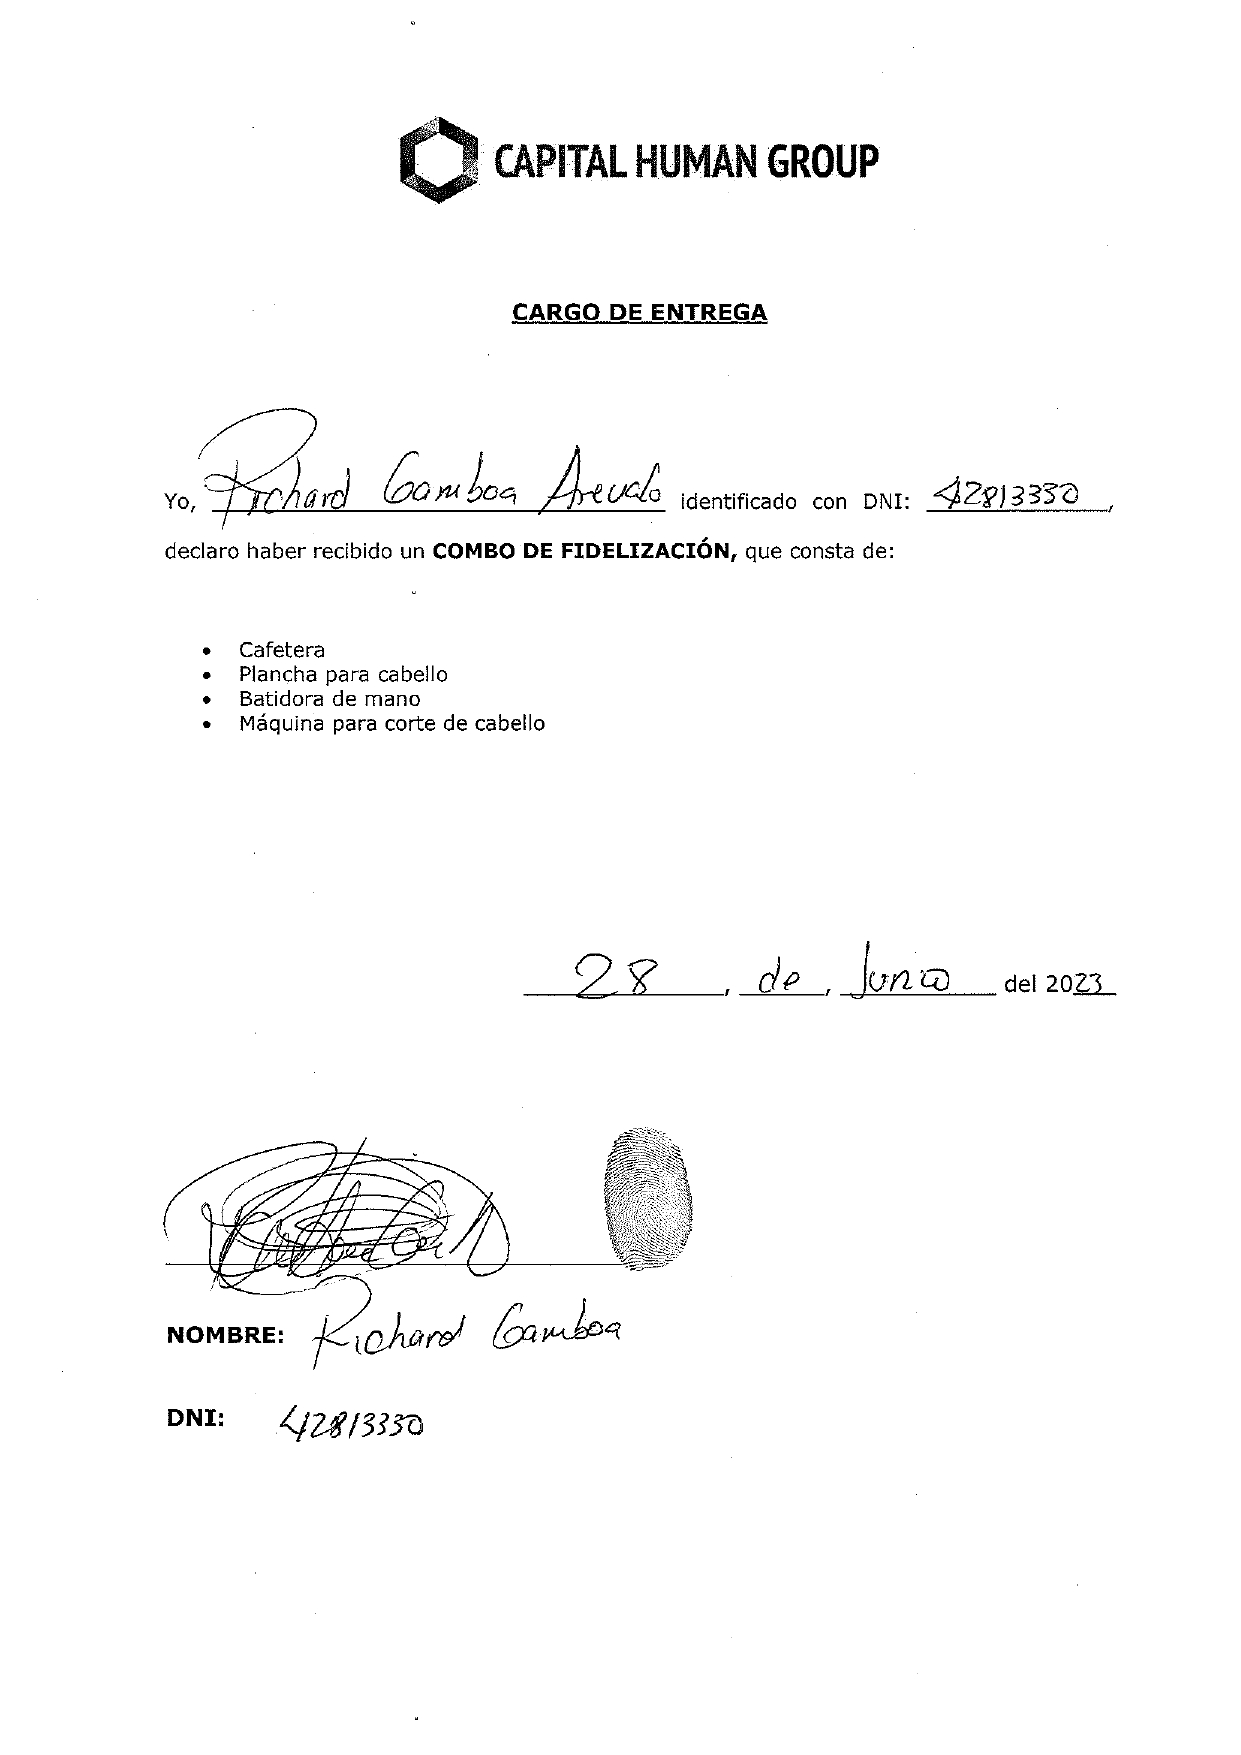 CAPITAL HUMAN GROUP
CARGO DE ENTREGA
Yo, Richard Gamboa Arevalo identificado con DNI: 42813330,
declaro haber recibido un COMBO DE FIDELIZACIÓN, que consta de:
• Cafetera
• Plancha para cabello
• Batidora de mano
• Máquina para corte de cabello
28, de, Junio del 2023
NOMBRE: Richard Gamboa
DNI: 42813330